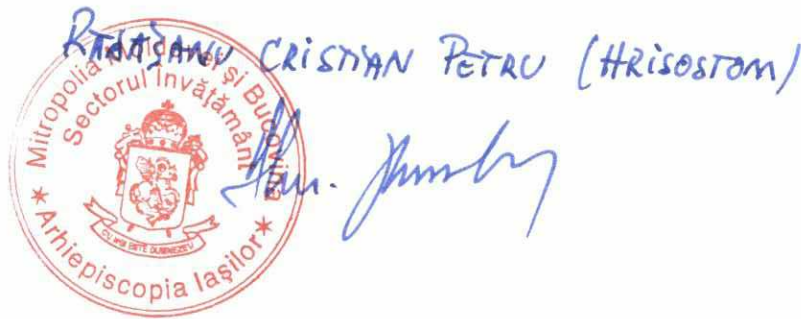 RĂDĂȘANU CRISTIAN PETRU (HRISOSTOM)
Mitropolia Moldovei și Bucovinei
Sectorul Învățământ
CU NOI ESTE DUMNEZEU
* Arhiepiscopia Iașilor *